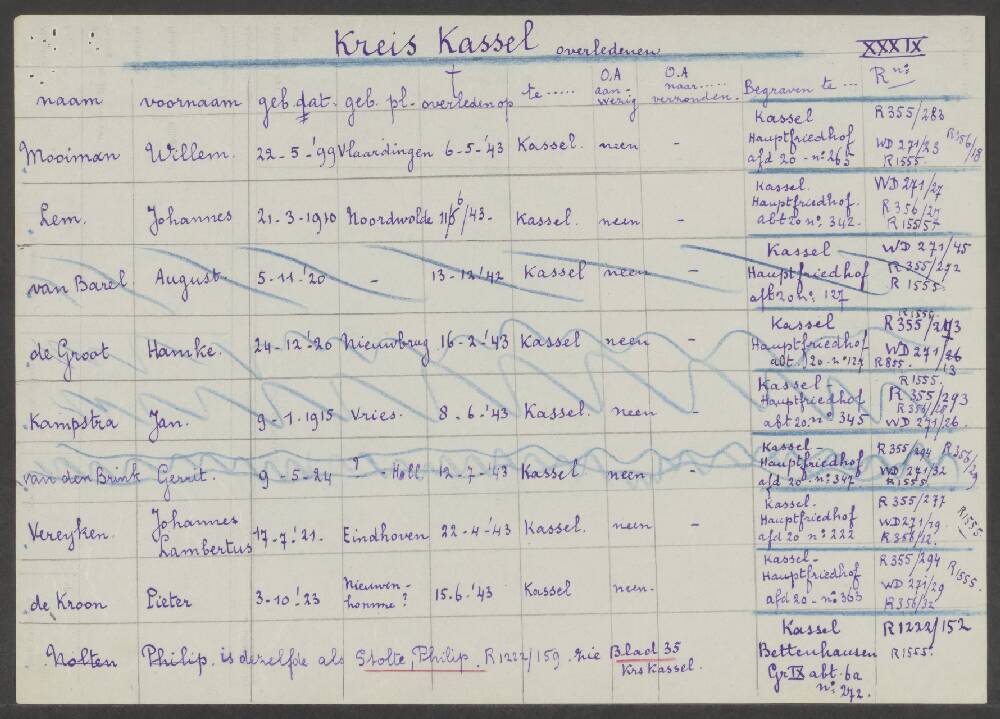 Kreis Kassel overledenen XXXIX
naam voornaam geb. dat. geb. pl. † overleden op te ..... O.A aanwezig O.A naar ..... verzonden. Begraven te ... R nrs
Mooiman Willem. 22-5-'99 Vlaardingen 6-5-'43 Kassel. neen - Kassel R355/283
Hauptfriedhof WD 271/23 R356/18
afd 20 - no 265 R1555.
Lem. Johannes 21-3-1910 Noordwolde 11/6/43. Kassel. neen - Kassel. WD 271/27
Hauptfriedhof. R356/27
abt 20 no. 342. R1555/57
van Barel August 5-11-'20 - 13-12-'42 Kassel neen - Kassel WD 271/45
Hauptfriedhof R355/272
afd 20 no. 127 R1555.
de Groot Hamke. 24-12-'20 Nieuwbrug 16-2-'43 Kassel neen - Kassel R1555.
Hauptfriedhof WD 271/26
abt. 20 - no 127 R855.
Kampstra Jan. 9-1-1915 Vries. 8-6-'43 Kassel. neen - Kassel - R1555.
Hauptfriedhof R355/293
abt 20. no 345 WD 271/26.
van den Brink Gerrit. 9-5-24 ? - Holl. 12-7-'43 Kassel neen - Kassel. R355/294 R356/29
Hauptfriedhof WD 271/32
afd 20 - no. 347. R1555.
Vereyken. Johannes Lambertus 17-7-'21. Eindhoven 22-4-'43 Kassel. neen - Kassel. R355/277 R1555.
Hauptfriedhof WD 271/19.
afd 20 no. 222 R356/12.
de Kroon Pieter 3-10-'23 Nieuwenhomme? 15.6-'43 Kassel neen. Kassel - R355/294 R1555.
Hauptfriedhof WD 271/29
afd 20 - no 363 R356/32
Nolten Philip. is dezelfde als Stolte, Philip. R1222/159. zie Blad 35 Kassel R1222/152
Krs Kassel. Bettenhausen R1555.
Gr IX abt. 6a
no. 272.